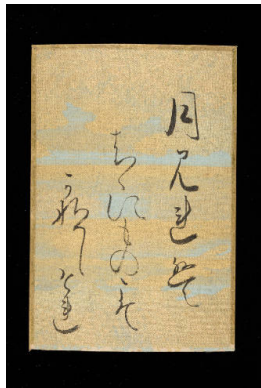 月見れは
ちゝにものこそ
かなしけれ